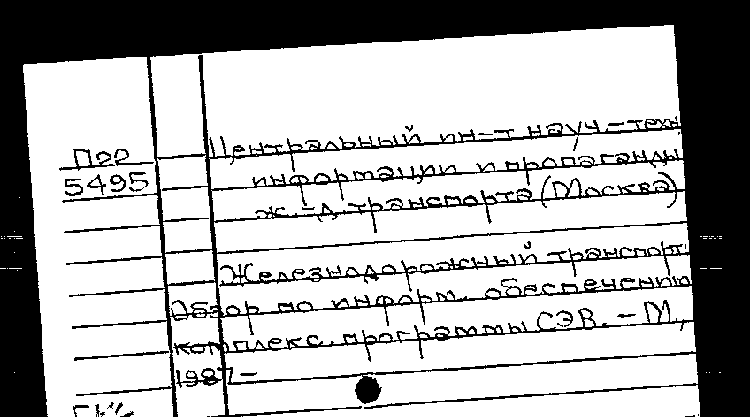 Пор
5495
Центральный ин-т науч.-техн.
информации и пропаганды
ж.-д. транспорта (Москва)
Железнодорожный транспорт:
Обзор по информ. обеспечению
комплекс. программы СЭВ. – М.,
1987–